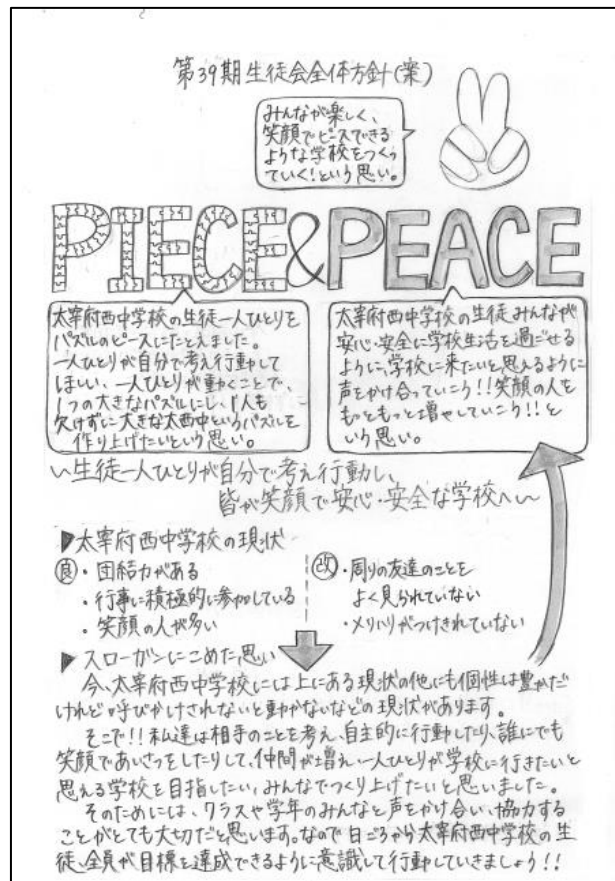 第39期生徒会全体方針(案)
みんなが楽しく、
笑顔でピースできる
ような学校をつくっ
ていく!という思い。
PIECE&PEACE
太宰府西中学校の生徒一人ひとりを
パズルのピースにたとえました。
一人ひとりが自分で考え行動して
ほしい、一人ひとりが動くことで、
1つの大きなパズルにし、1人も
欠けずに大きな太西中というパズルを
作り上げたいという思い。
太宰府西中学校の生徒みんなが
安心・安全に学校生活を過ごせる
ように、学校に来たいと思えるように
声をかけ合っていこう!!笑顔の人を
もっともっと増やしていこう!!と
いう思い。
〜生徒一人ひとりが自分で考え行動し、
皆が笑顔で安心・安全な学校へ〜
▶太宰府西中学校の現状
良・団結力がある
・行事に積極的に参加している
・笑顔の人が多い
改・周りの友達のことを
よく見られていない
・メリハリがつけきれていない
▶スローガンにこめた思い
今、太宰府西中学校には上にある現状の他にも個性は豊かだ
けれど呼びかけされないと動かないなどの現状があります。
そこで!!私達は相手のことを考え、自主的に行動したり、誰にでも
笑顔であいさつをしたりして、仲間が増え、一人ひとりが学校に行きたいと
思える学校を目指したい、みんなでつくり上げたいと思いました。
そのためには、クラスや学年のみんなと声をかけ合い、協力する
ことがとても大切だと思います。なので日ごろから太宰府西中学校の生
徒、全員が目標を達成できるように意識して行動していきましょう!!